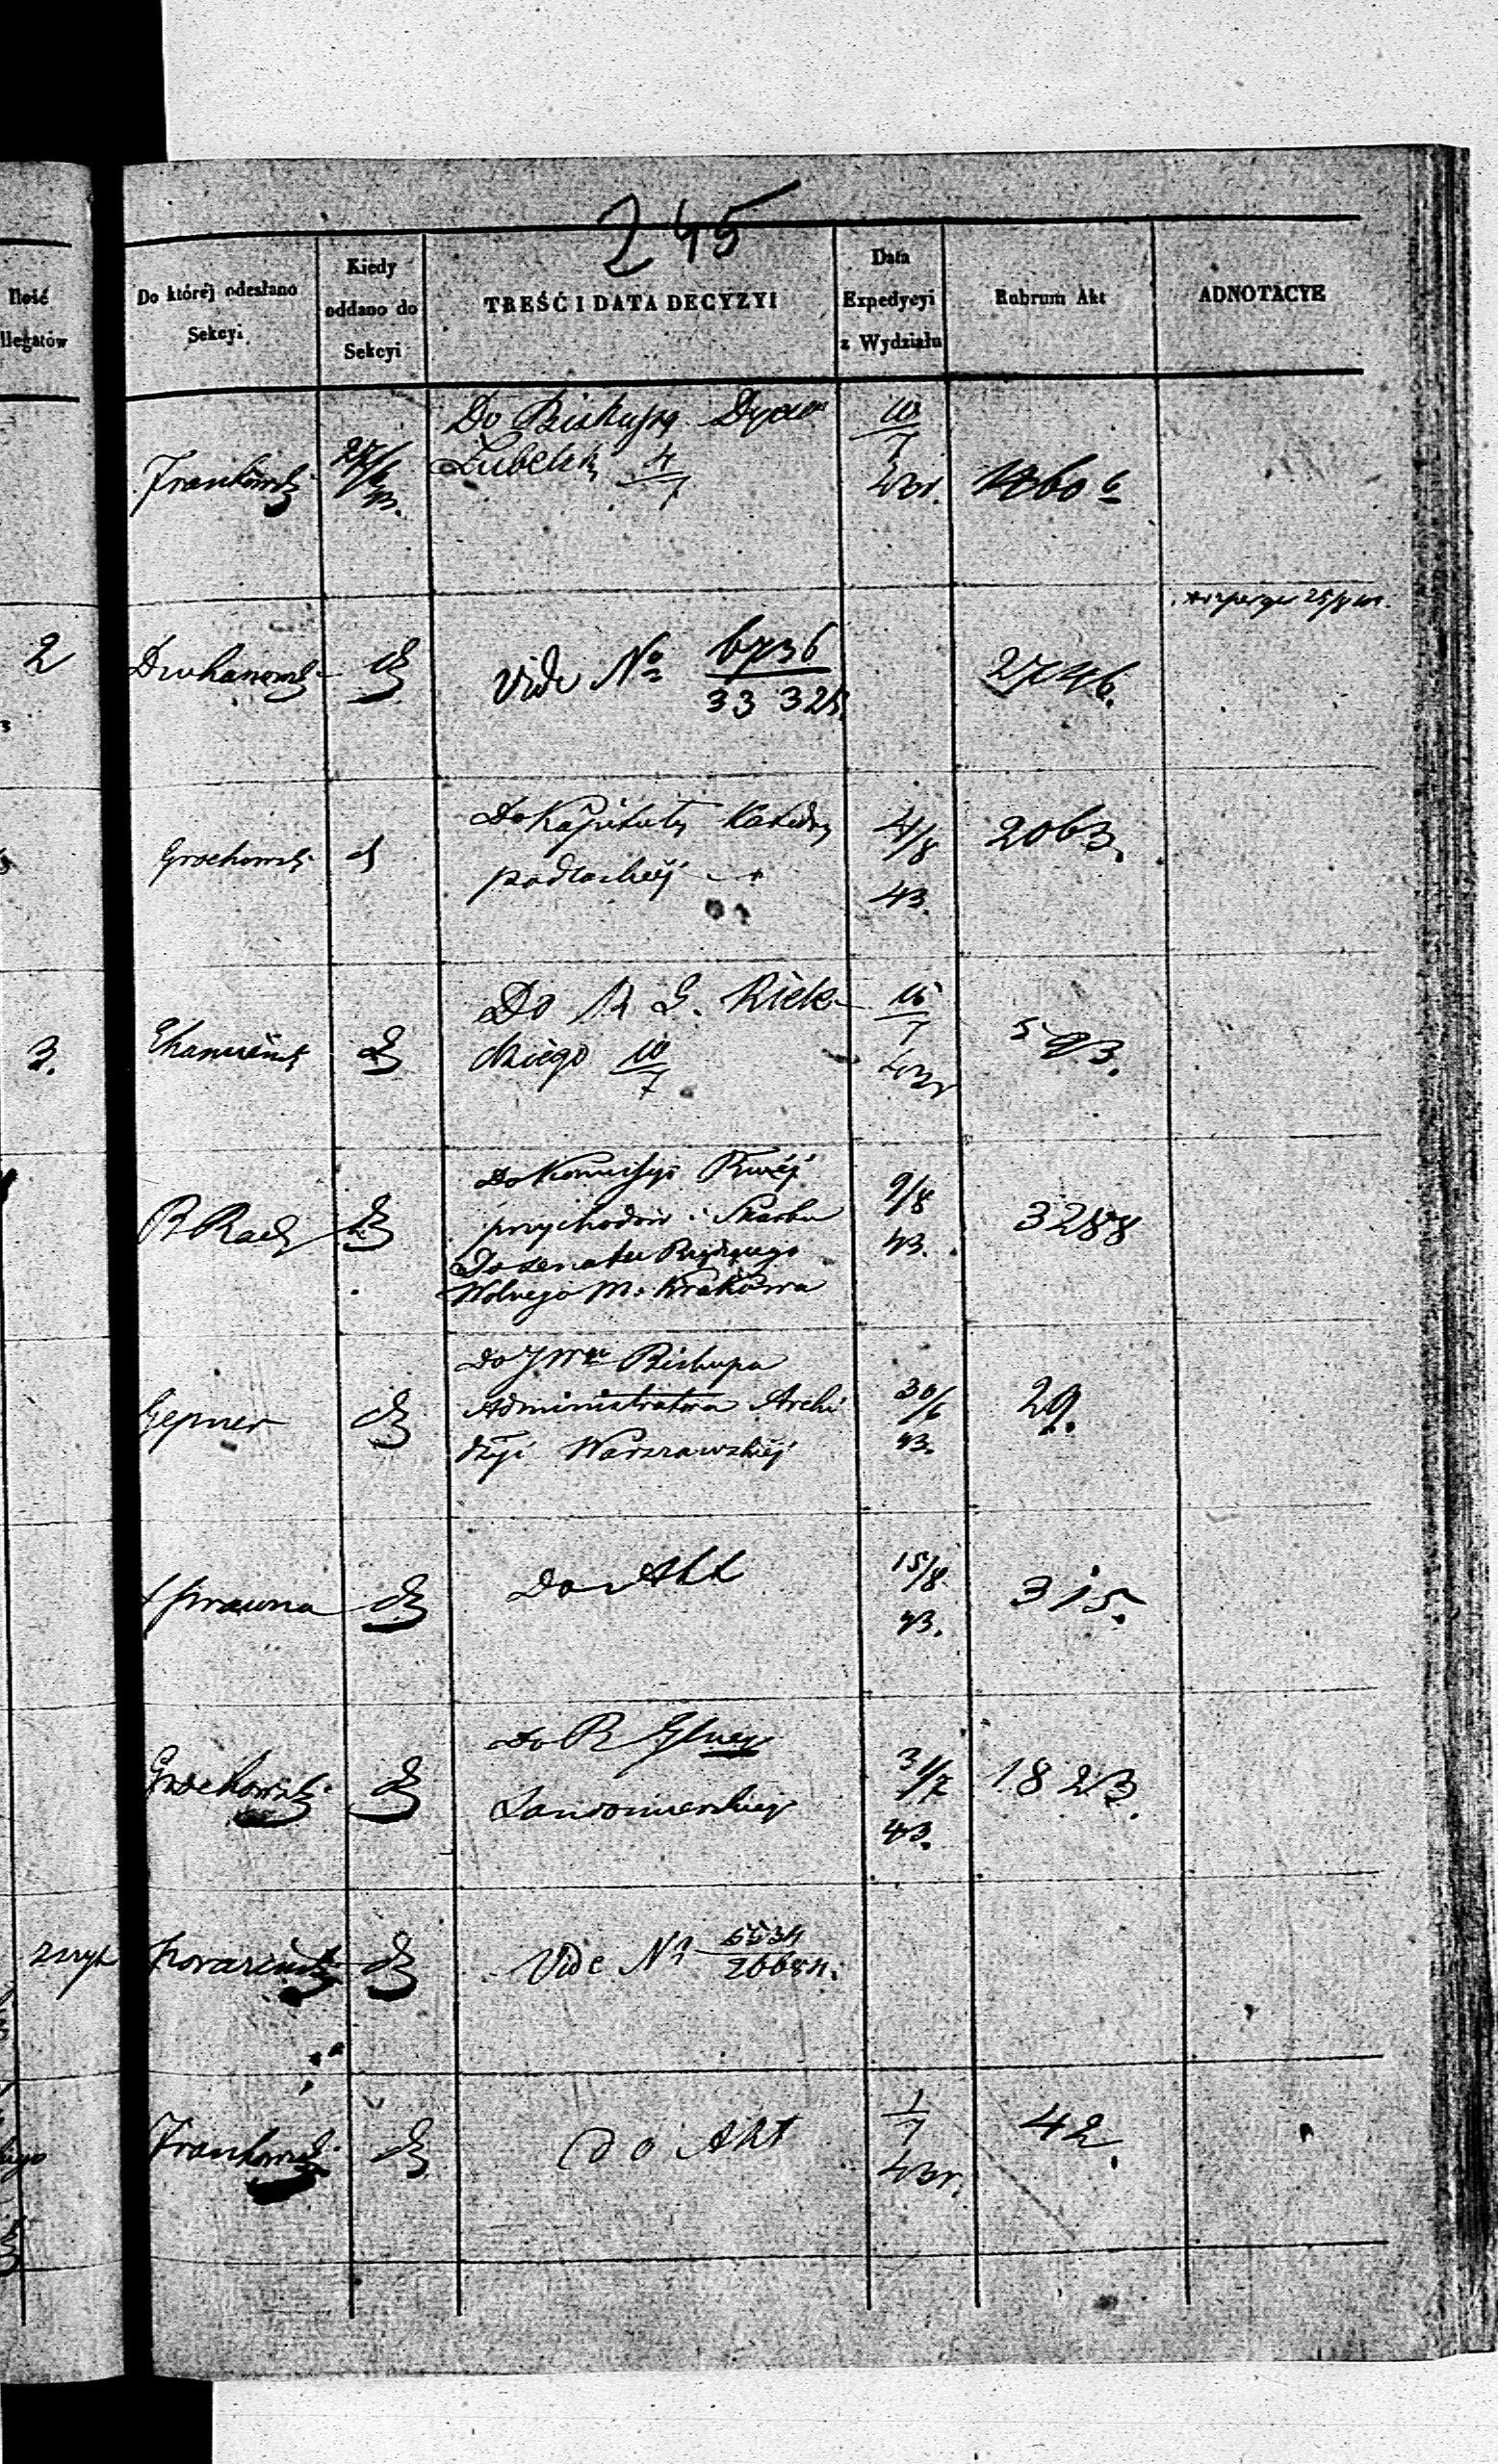 245
Ilość
llegatów
Do któréj odesłano
Sekcyi
Kiedy
oddano do
Sekcyi
TREŚĆ I DATA DECYZYI
Data
Expedycyi
z Wydziału
Rubrum Akt
ADNOTACYE
Frankowski
27/6 43.
Do Biskupa Dyece
Lubelsk 4/7
10/7
43r.
2
vide No 6736/33 325.
2746.
Grochowski
d
Do Kapituły Katedry
podlaskiéj
4/8
43.
2063.
3.
dt
Do R G. Kiele
ckiego 10/7
15/7
43r
593.
B Rach
dt
Do Komissyi Rwéj
przychodów i Skarbu
Do Senatu Rządzącego
Wolnego M. Krakowa
9/8
43.
3288
Gepner
dt
Do JWo Biskupa
Administratora Archi
dyi Warszawskiéj
30/6
43.
29.
Sprawna
dt
Do Akt
15/8
43.
315.
Grochowski
dt
Do R Glnej
Sandomierskiej
31/7
43.
1823.
dt
Vide No 5534/26684.
Frankowski
dt
do Akt
1/7
43r.
42.